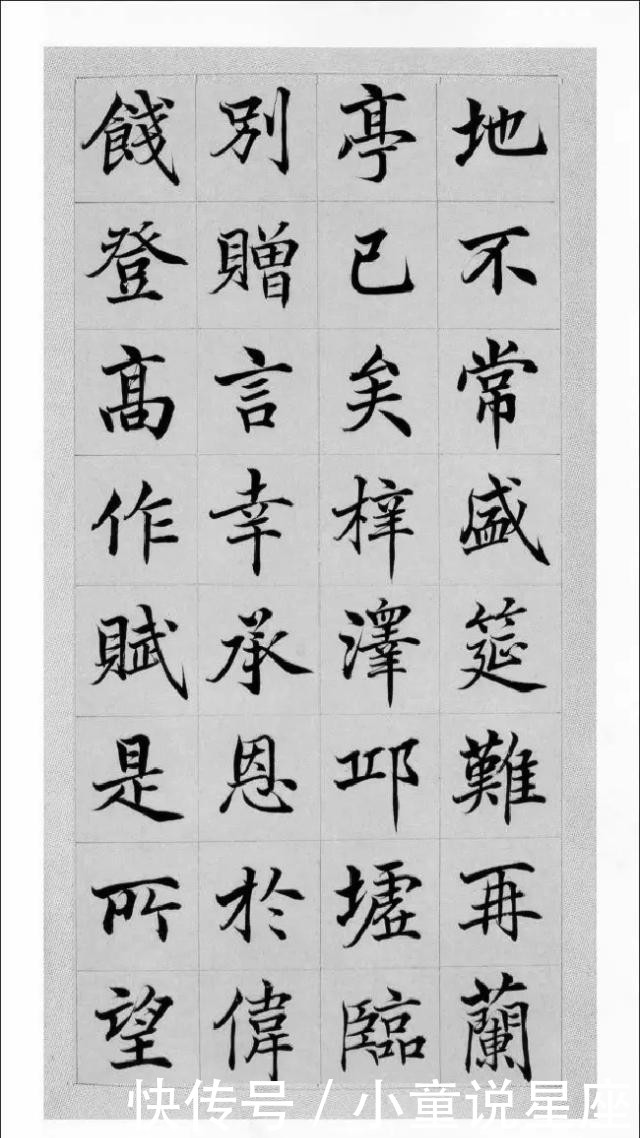 地不常盛筵難再蘭
亭已矣梓澤邱墟臨
別贈言幸承恩於偉
餞登高作賦是所望
快传号 / 小童说星座